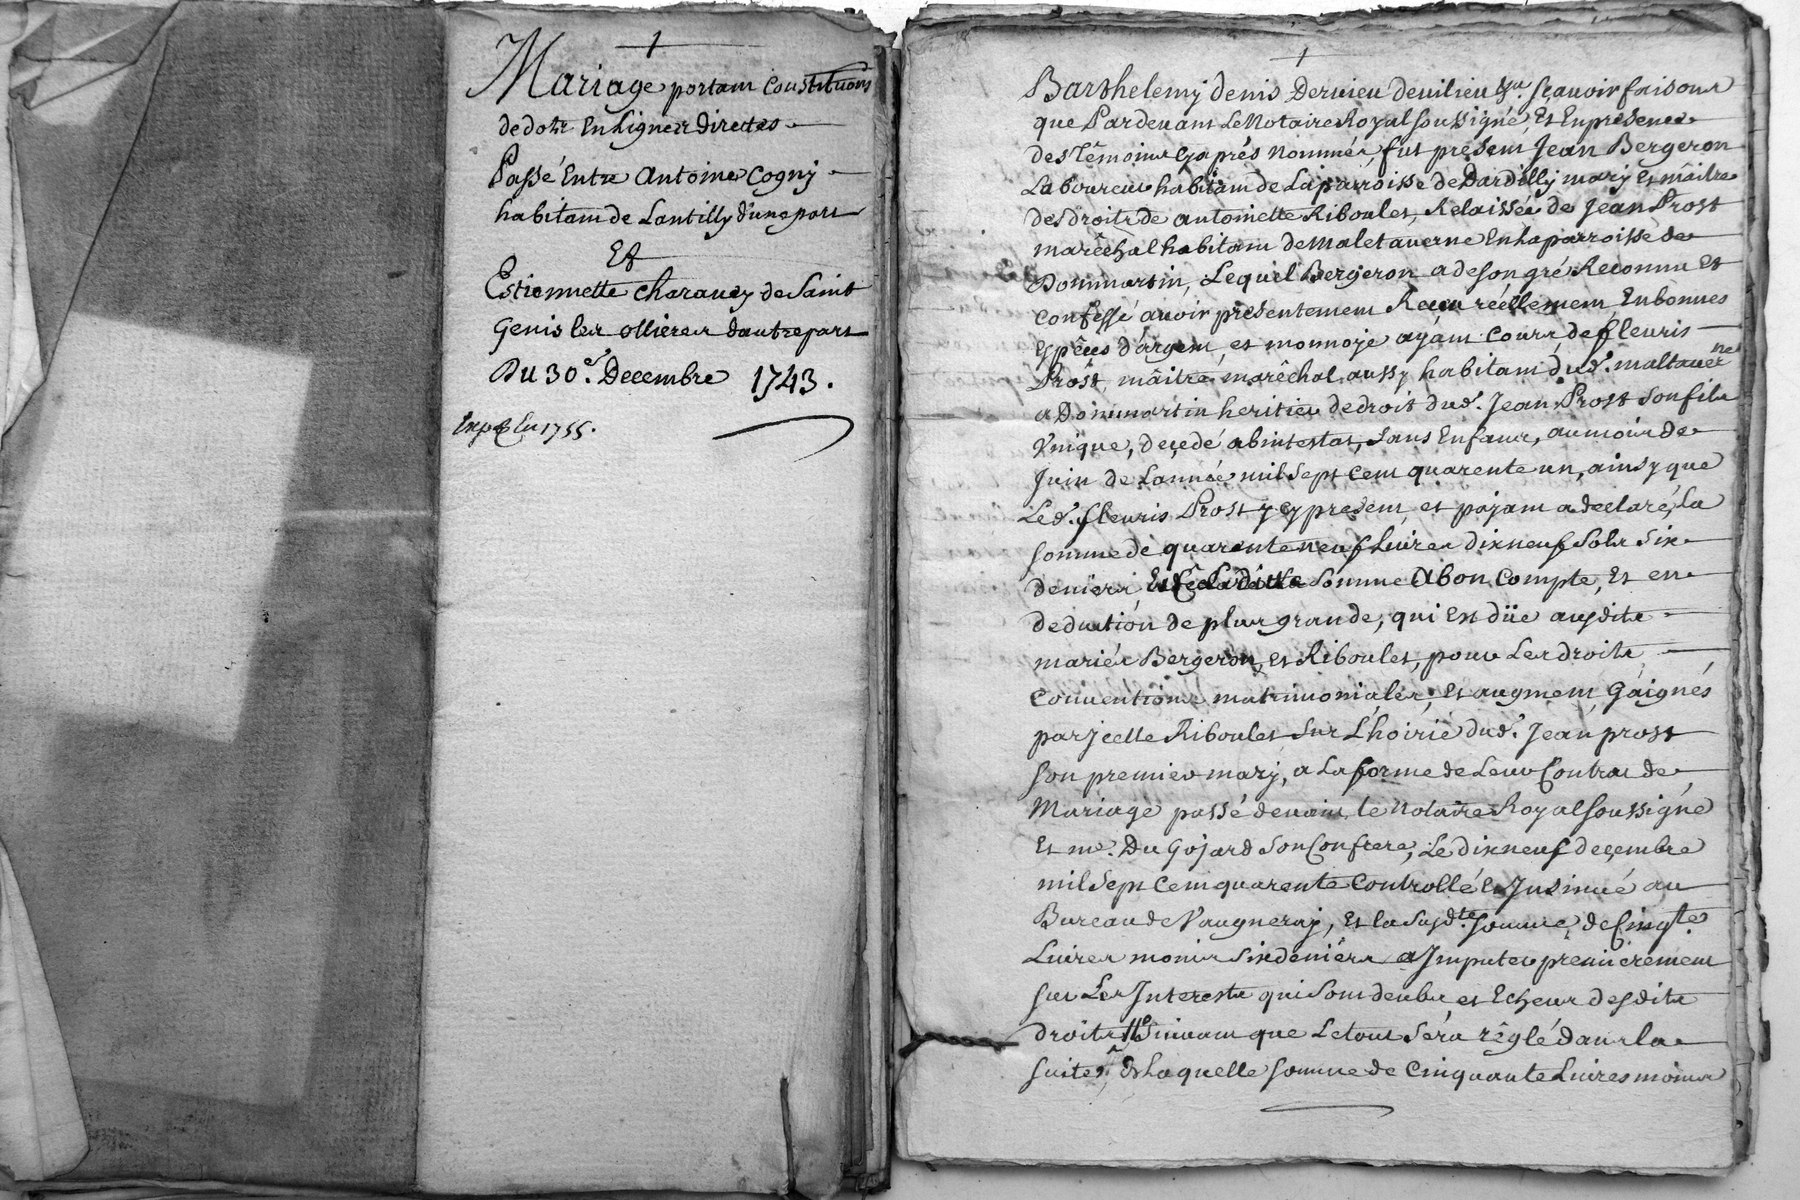 Mariage portant Constitutions
de dotte En Lignes directes
Passé Entre Antoine Cogny
habitant de Lantilly d'une part
Et
Estiennette Charavey de Saint
Genis les ollieres dautre part
Du 30e. Decembre 1743.
Exp. En 1755.
Barthelemy denis Dervieu de vilieu Esr. sçavoir faisons
que Pardevant Le Notaire Royal soussigné, Et En presence
des Têmoins Cy après nommés, fut présent Jean Bergeron
Laboureur habitant de La parroisse de Dardilly mary et mâitre
des droits de antoinette Riboulet, Relaissée de Jean Prost
marêchal habitant de Maletaverne En La parroisse de
Dommartin, Lequel Bergeron a de son gré Reconnu et
confessé avoir présentement Receu réellement, En bonnes
Espêces d'argent, et monnoye ayant cours, de fleuris
Prost, mâitre marêchal aussy habitant dud. maltaverne
a Dommartin heritier de droit dud. Jean Prost son fils
Vnique, decedé abintestat, sans Enfans, au mois de
Juin de Lannée mil sept cent quarente un, ainsy que
Led. fleuris Prost y cy présent, et payant a declaré, La
somme de quarente neuf Livres dix neuf sols six
deniers, Et somme Abon compte, et en
deduction de plus grande, qui Est düe ausdits
mariés Bergeron, et Riboulet, pour Les droits
conventions matrimoniales, et augment Gaignés
par Jcelle Riboulet sur L'hoirie dud. Jean prost
son premier mary, a La forme de Leur Contrat de
Mariage passé devant le Notaire Royal soussigné
Et me. Du Gojard son Confrere, Le dix neuf decembre
mil sept cent quarente Controllé & Jnsinué au
Bureau de Vaugneray, Et la susdte. somme de Cinqte.
Livres moins six deniers a Jmputer premierement
sur Les Jnterests qui sont deubs et Echeus desdits
droits suivant que Le tout sera règlé dans la
suite, de Laquelle somme de Cinquante Livres moins